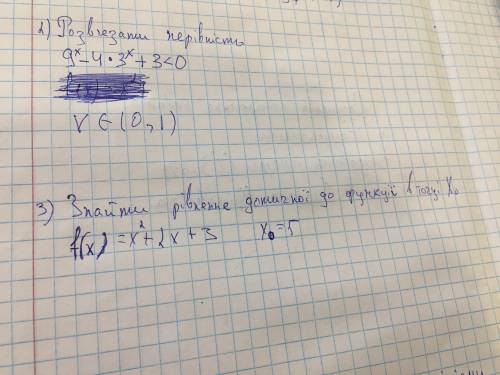 2) Розвʼязати нерівність
9^x - 4 • 3^x + 3 < 0
V ∈ (0, 1)
3) Знайти рівнення дотичної до функції в точці x₀
f(x) = x² + 2x + 3 x₀ = 5